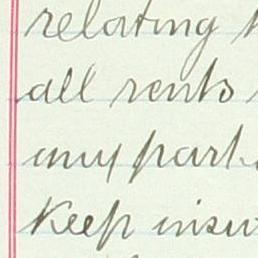 relating
all rents
any part
Keep insu